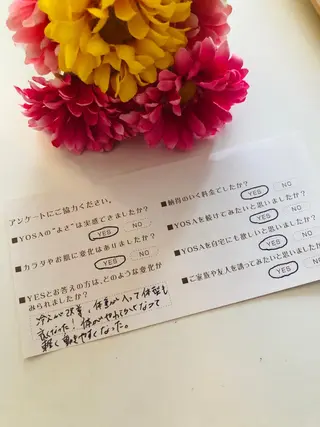 アンケートにご協力ください。
■YOSAの"よさ"は実感できましたか?
YES NO
■カラダやお肌に変化はありましたか?
YES NO
■YESとお答えの方は、どのような変化が
みられましたか?
冷えが改善、体重が入って体質も
良くなった!体がやわらかくなって
軽く動きやすくなった。
■納得のいく料金でしたか?
YES NO
■YOSAを続けてみたいと思いましたか?
YES NO
■YOSAを自宅にも欲しいと思いましたか?
YES NO
■ご家族や友人を誘ってみたいと思いましたか?
YES NO